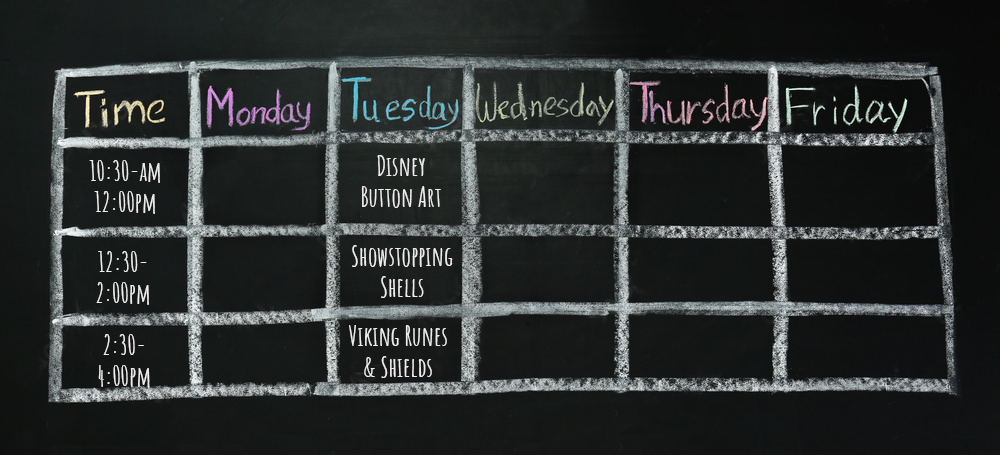 Time Monday Tuesday Wednesday Thursday Friday
10:30-am
12:00pm
Disney
Button Art
12:30-
2:00pm
Showstopping
Shells
2:30-
4:00pm
Viking Runes
& Shields